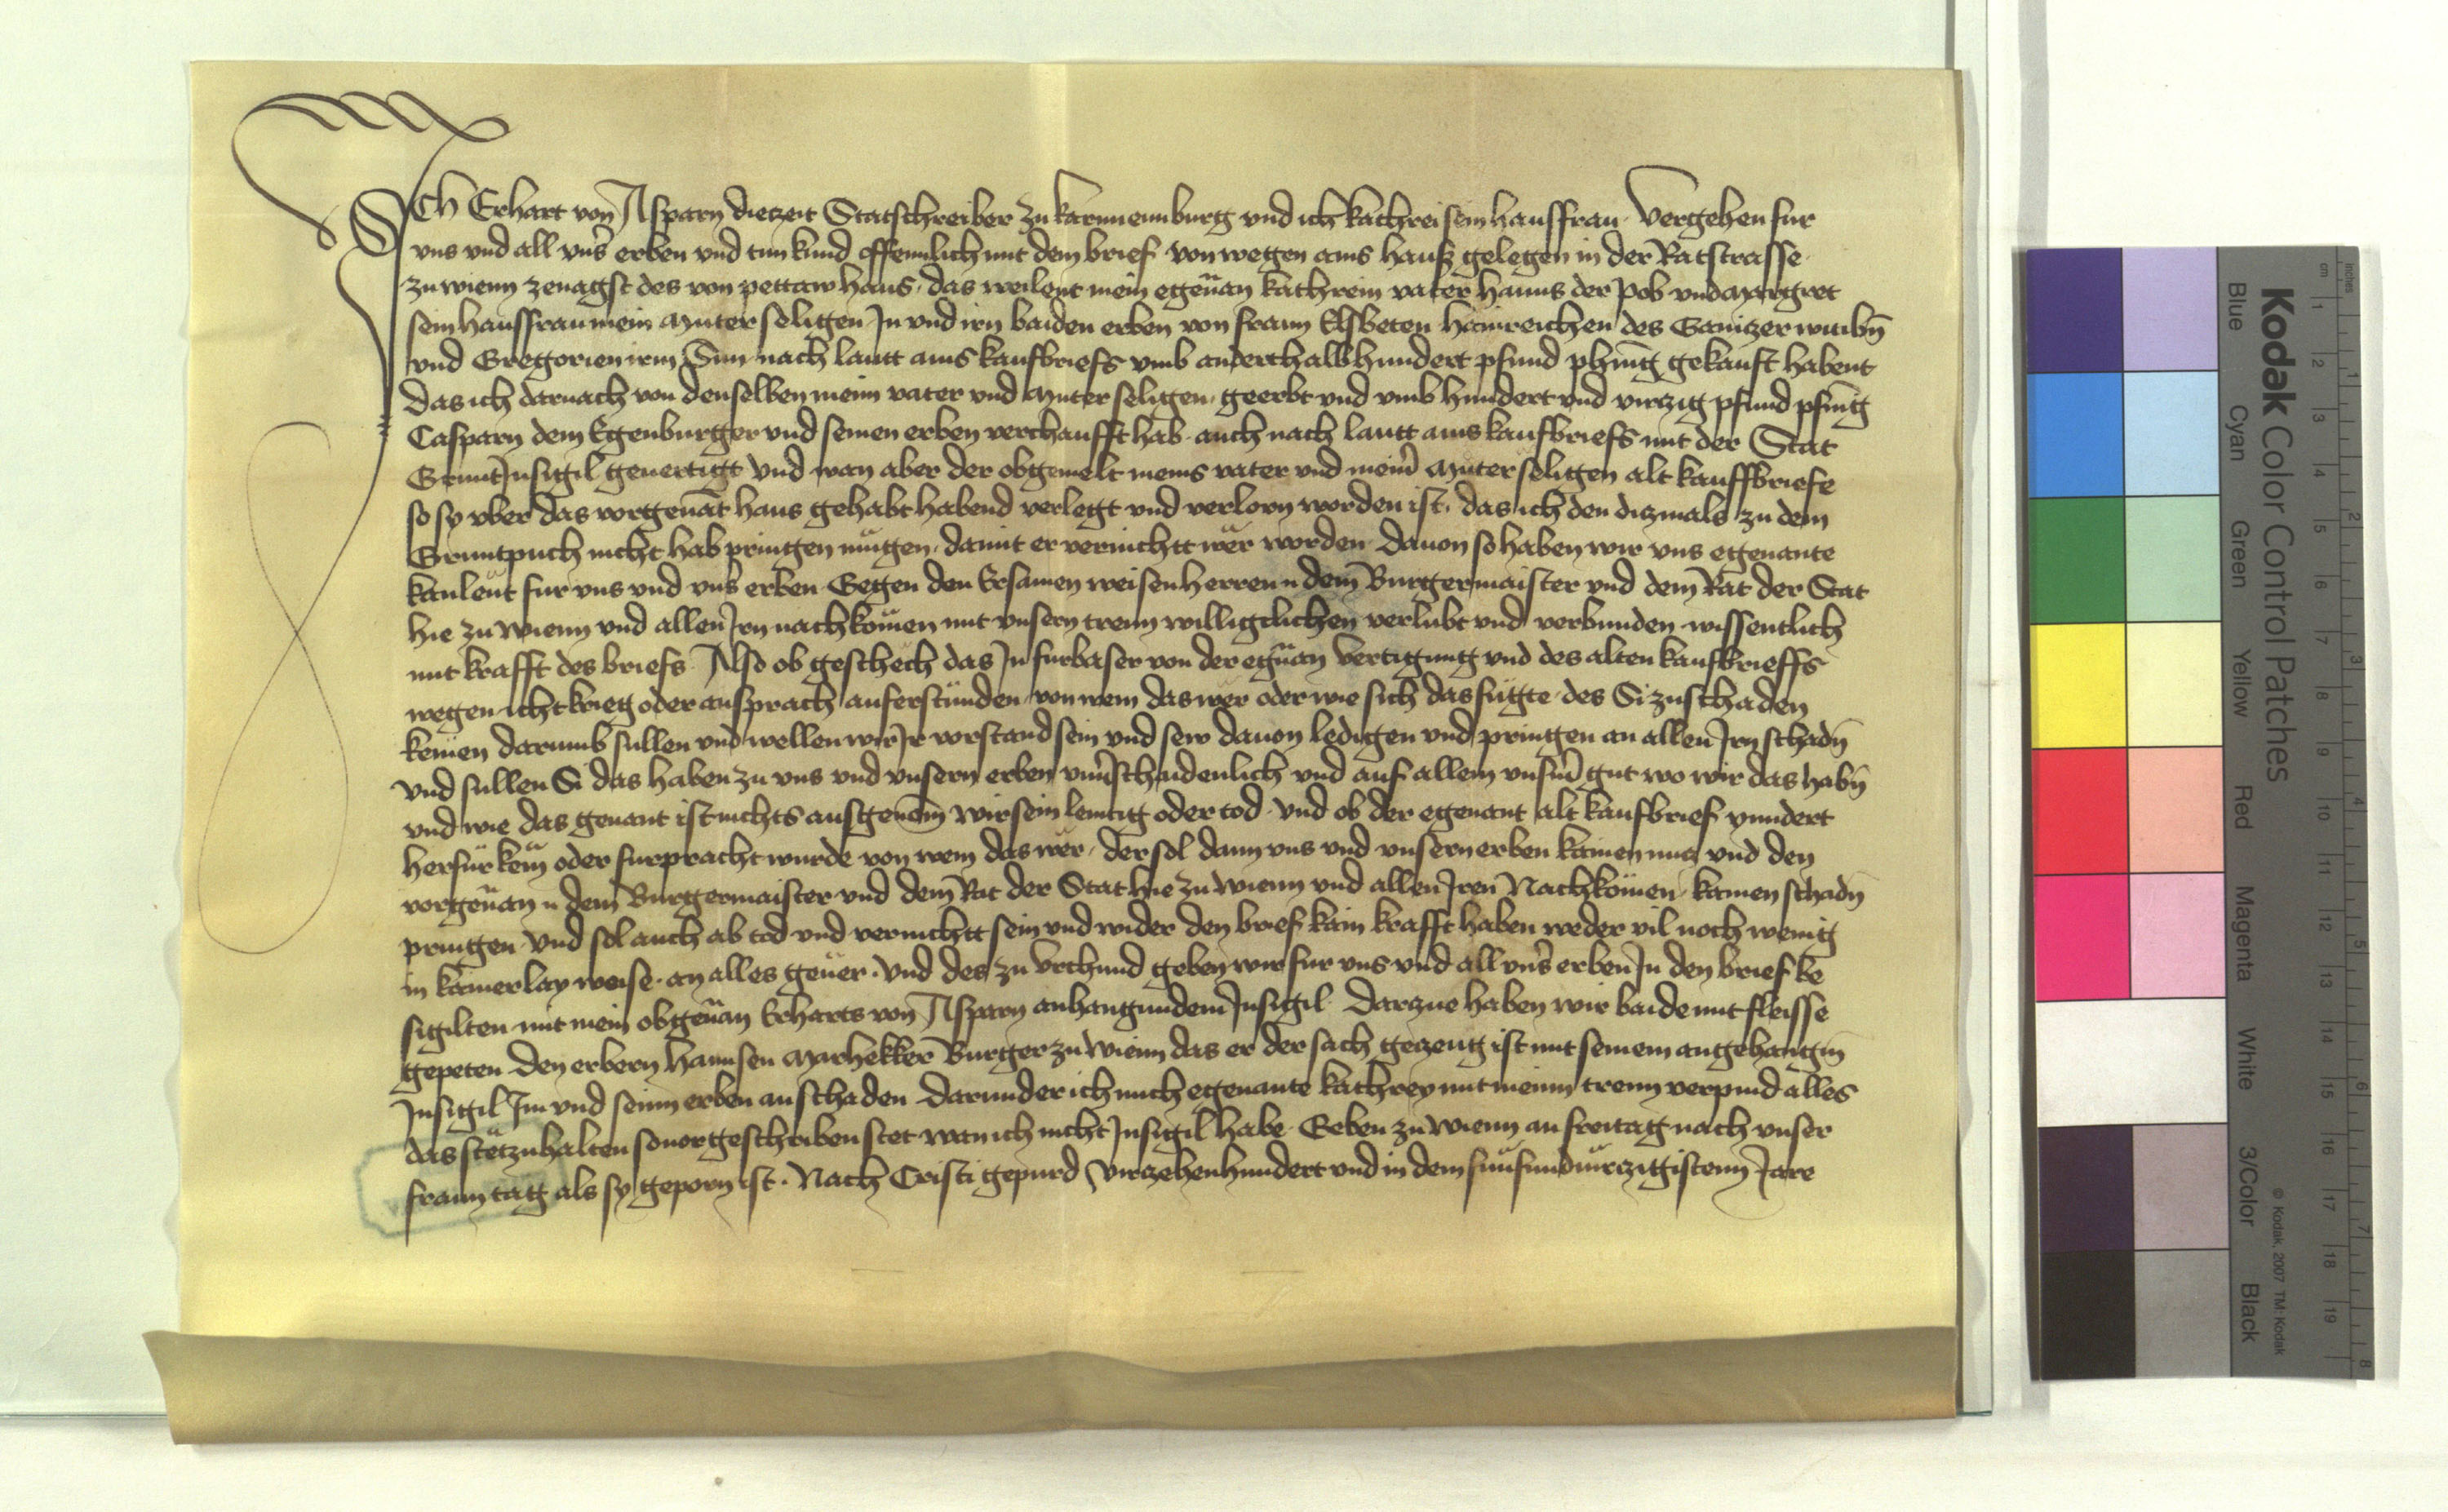 Ich Erhart von Asparn dieczeit Statschreiber zu karnneunburg vnd ich kathrei sein hausfrau · Vergehen fur
vns vnd all vns̄ erben vnd tun kund offennlich mit dem brief von wegen ains hauß gelegen in der Ratstrasse
zu wienn zenagst des von pettaw haus, das weilent mein egen̄an̄ kathrein vater hanns der Pob vnd Margret
sein hausfrau mein Muter seligen In vnd irn baiden erben von fraun Elsbeten hainreichen des Ganiczer wittibn̄
vnd Gregorien irm Sun nach lautt ains kaufbriefs vmb anderthalbhundert pfund phēnīg gekauft habent
Das ich darnach von denselben meim vater vnd Muter seligen geerbt vnd vmb hundert vnd virczig pfund pfenīg
Casparn dem Egenburger vnd seinen erben verchaufft hab auch nach lautt ains kaufbriefs mit der Stat
Grunt Insigil geuertigt Vnd wan aber der obgemelt meins vater vnd meinr̄ Muter seligen alt kauffbriefe
so sy vber das vorgenāt haus gehabt habend verlegt vnd verlorn worden ist, das ich den diczmals zu dem
Gruntpuch nicht hab pringen mügen, damit er vernichtt wër worden Dauon so haben wir vns egenante
kanleüt fur vns vnd vns̄ erben Gegen den Ersamen weisen herren n dem Burgermaister vnd dem Rat der Stat
hie zu wienn vnd allen Irn nachkömen mit vnsern trewn willigclichen verlubt vnd verbunden wissentlich
mit krafft des briefs · Also ob geschëch das In furbaser von der egn̄an̄ vertigung vnd des alten kaufbrieffs
wegen icht krieg oder ansprach auferstünden von wem das wër oder wie sich das fügte des Si zu schaden
kemen darumb sullen vnd wellen wir Ir vorstand sein vnd sew dauon ledigen vnd pringen an allen Irn schadn̄
Vnd sullen Si das haben zu vns vnd vnsern erben vnuͦschaidenlich vnd auf allem vnserm̄ gut wo wir das habn̄
vnd wie das genant ist nichts ausgenōm̄ wir sein lemtig oder tod · Vnd ob der egenant alt kaufbrief yndert
herfür kem̄ oder furpracht wurde von wem das wër, der sol dann vns vnd vnsern erben kainen nucz vnd den
vorgen̄an̄ n dem Burgermaister vnd dem Rat der Stat hie zu wienn vnd allen Iren Nachkömen kainen schadn̄
pringen Vnd sol auch ab tod vnd vernichtt sein vnd wider den brief kain krafft haben weder vil noch wenig
in kainerlay weise · an alles geuër · Vnd des zu Vrchund geben wir fur vns vnd all vns̄ erben In den brief be
sigilten mit mein obgen̄an̄ Erharts von Asparn anhangundem Insigil · Darczue haben wir baide mit fleisse
gepeten den erbern hannsen Marhekker Burger zu Wienn das er der sach geczeug ist mit seinem angehangm̄
Insigil Im vnd seinn erben an schaden Darunder ich mich egenante kathrey mit meinn trewn verpind alles
das stët zuhalten so uorgeschriben stet wan ich nicht Insigil habe · Geben zu Wienn an freitag nach vnser
fraun tag als sy geporn ist · Nach Cristi gepurd Virczehenhundert vnd in dem fünfundvirczigistem Jare
Kodak Color Control Patches
Blue Cyan Green Yellow Red Magenta White 3/Color Black
© Kodak, 2007 TM: Kodak
cm 1 2 3 4 5 6 7 8 9 10 11 12 13 14 15 16 17 18 19
inches 1 2 3 4 5 6 7 8